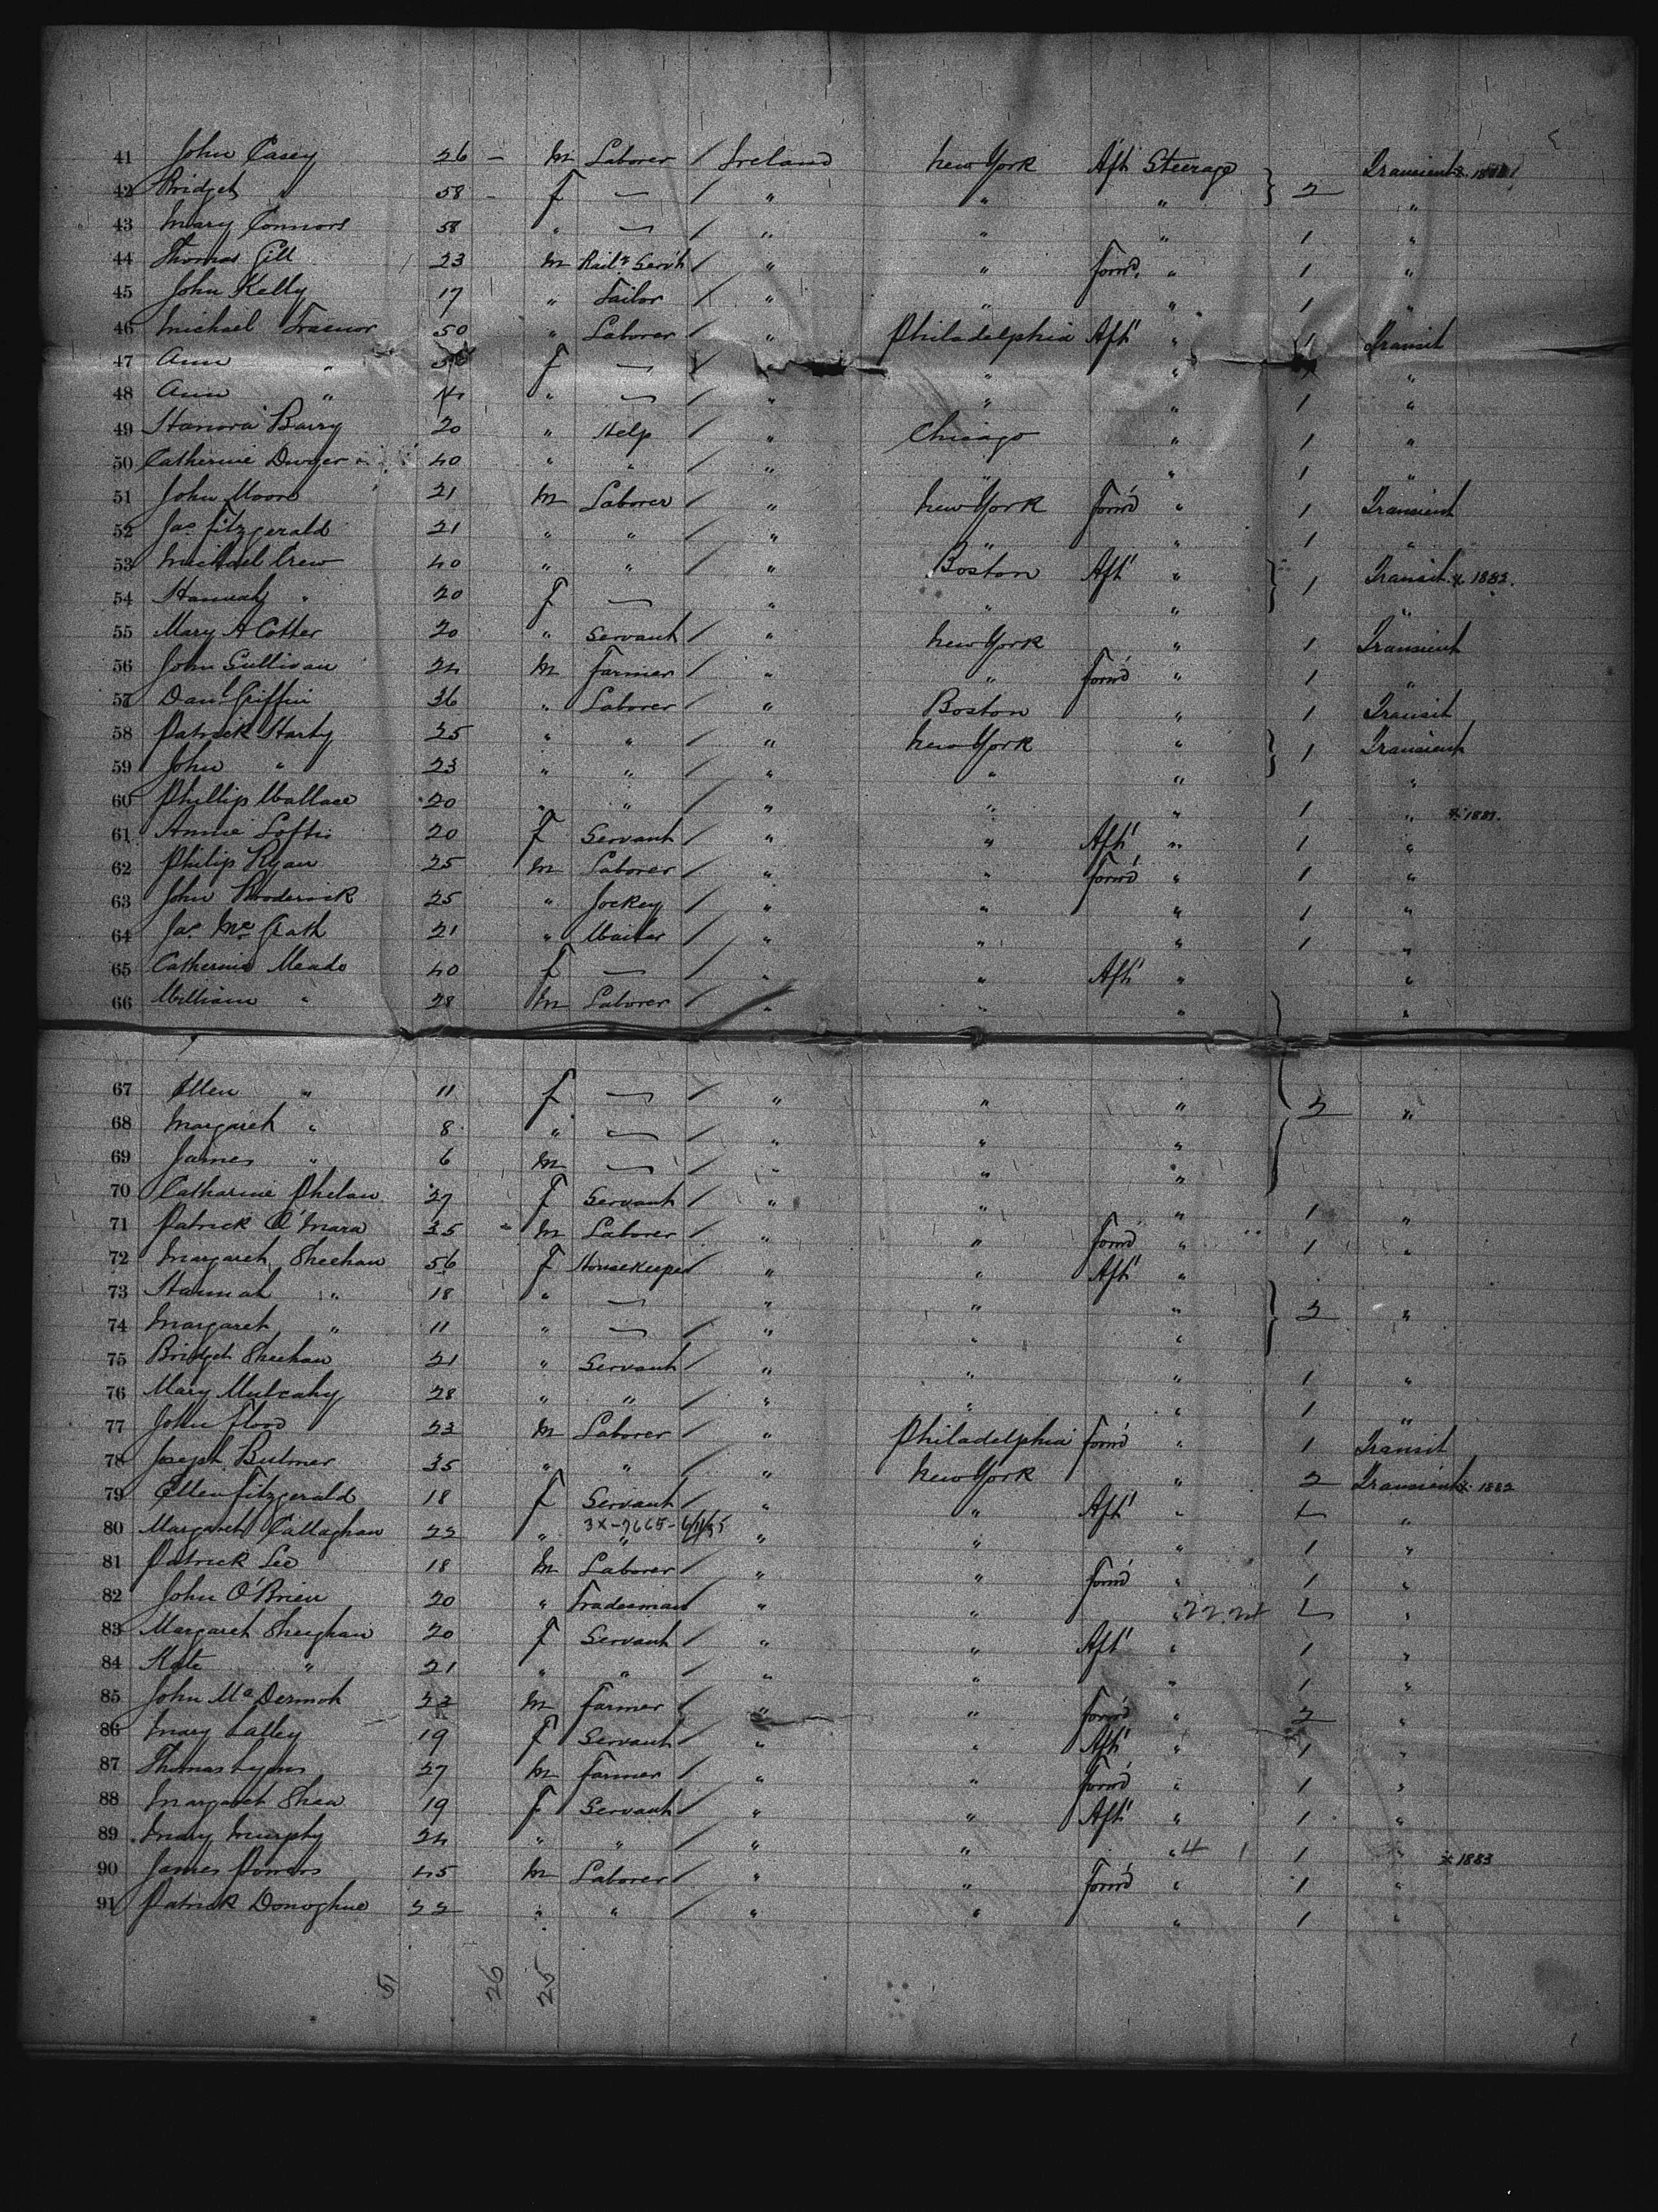 41 John Casey 26 - M Laborer / Ireland New York Aft Steerage Transient
42 Bridget " 58 - F — / " " " } 2 "
43 Mary Connors 58 " — / " " " 1 "
44 Thomas Gill 23 M Railr Servt / " " Forwd " 1 "
45 John Kelly 17 " Tailor / " " " 1 "
46 Michael Trasnor 50 " Laborer / " Philadelphia Aft " 1 Transit
47 Ann " F — / " " " "
48 Ann " " — / " " " 1 "
49 Hanora Barry 20 " Help / " Chicago " 1 "
50 Catherine Dwyer 40 " " / " " " 1 "
51 John Moore 21 M Laborer / " New York Forwd " 1 Transient
52 Jas Fitzgerald 21 " " / " " " 1 "
53 Michael Crew 40 " " / " Boston Aft " } 1 Transit x 1882.
54 Hannah " 20 F — " " " "
55 Mary A Cotter 20 " Servant / " New York " 1 Transient
56 John Sullivan 24 M Farmer / " " Forwd " 1 "
57 Danl Griffin 36 " Laborer / " Boston " 1 Transit
58 Patrick Harty 25 " " / " New York " } 1 Transient
59 John " 23 " " / " " " "
60 Phillip Wallace 20 " " / " " " 1 " x 1881.
61 Annie Loftus 20 F Servant / " " Aft " 1 "
62 Philip Ryan 25 M Laborer / " " Forwd " 1 "
63 John Broderick 25 " Jockey / " " " 1 "
64 Jas McGrath 21 " Waiter / " " " 1 "
65 Catherine Meade 40 F — / " " Aft " "
66 William " 28 M Laborer / " " " "
67 Ellen " 11 F — / " " " 2 "
68 Margaret " 8 " — / " " "
69 James " 6 M — / " " "
70 Catharine Phelan 27 F Servant / " " " 1 "
71 Patrick O'Mara 35 M Laborer / " " Forwd " 1 "
72 Margaret Sheehan 56 F Housekeeper / " " Aft "
73 Hannah " 18 " — " " " } 2 "
74 Margaret " 11 " — / " " "
75 Bridget Sheehan 21 " Servant / " " " 1 "
76 Mary Mulcahy 28 " " / " " " 1 "
77 John Flood 23 M Laborer / " Philadelphia Forwd " 1 Transit
78 Joseph Bulmer 35 " " / " New York " 2 Transient x 1882
79 Ellen Fitzgerald 18 F Servant / " " Aft " "
3X-7665-6/11/35
80 Margaret Callaghan 22 " " " " " 1 "
81 Patrick Lee 18 M Laborer / " " Forwd " 1 "
82 John O'Brien 20 " Tradesman " " " "
83 Margaret Sheeghan 20 F Servant / " " Aft " 1 "
84 Kate " 21 " " / " " " 1 "
85 John McDermot M Farmer / " " Forwd " 2 "
86 Mary Lalley 19 F Servant / " " Aft " 1 "
87 Thomas Lyons 27 M Farmer / " " Forwd " 1 "
88 Margaret Shea 19 F Servant / " " Aft " 1 "
89 Mary Murphy 24 " " / " " " 4 1 "
90 James Powers 45 M Laborer / " " Forwd " 1 " x 1883
91 Patrick Donoghue 22 " " / " " " 1 "
26 25